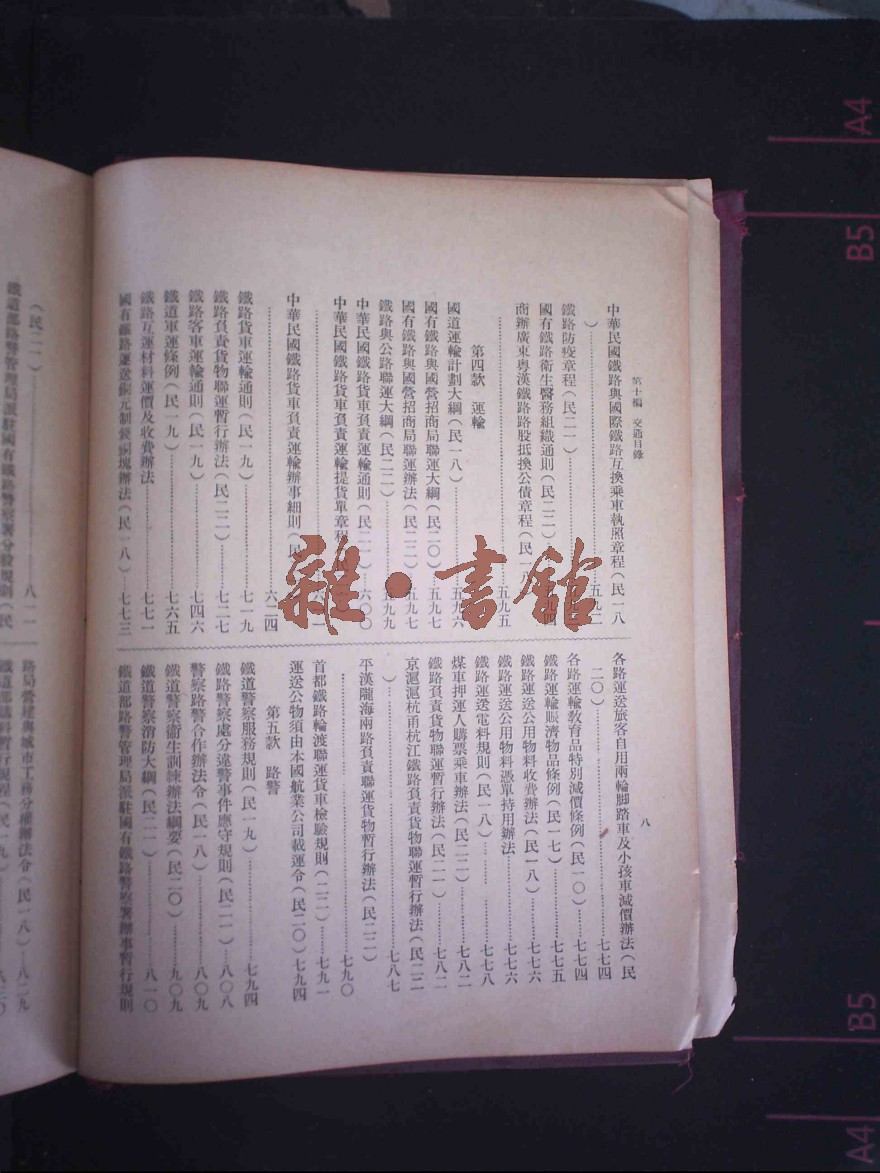 第十編　交通目錄
八
中華民國鐵路與國際鐵路互換乘車執照章程（民一八
）……五九二
鐵路防疫章程（民二一）
國有鐵路衛生醫務組織通則（民二二）
商辦廣東粵漢鐵路路股抵換公債章程（民一八
……五九五
第四款　運輸
國道運輸計劃大綱（民一八）……五九六
國有鐵路與國營招商局聯運大綱（民二〇）…五九七
國有鐵路與國營招商局聯運辦法（民二二）…五九七
鐵路與公路聯運大綱（民二二）……五九九
中華民國鐵路貨車負責運輸通則（民二一）…六〇〇
中華民國鐵路貨車負責運輸提貨單章程
中華民國鐵路貨車負責運輸辦事細則（民
……六二四
鐵路貨車運輸通則（民一九）……七一九
鐵路負責貨物聯運暫行辦法（民二二）……七二七
鐵路客車運輸通則（民一九）……七四六
鐵道軍運條例（民一九）……七六五
鐵路互運材料運價及收費辦法……七七一
國有鐵路運送銅元制錢銅塊辦法（民一八）…七七三
各路運送旅客自用兩輪腳踏車及小孩車減價辦法（民
二〇）……七七四
各路運輸教育品特別減價條例（民一〇）…七七四
鐵路運輸賑濟物品條例（民一七）……七七五
鐵路運送公用物料收費辦法（民一八）……七七六
鐵路運送公用物料憑單持用辦法……七七六
鐵路運送電料規則（民一八）……七七八
煤車押運人購票乘車辦法（民二二）……七八二
鐵路負責貨物聯運暫行辦法（民二一）……七八二
京滬滬杭甬杭江鐵路負責貨物聯運暫行辦法（民二二
）……七八七
平漢隴海兩路負責聯運貨物暫行辦法（民二二）
……七九〇
首都鐵路輪渡聯運貨車檢驗規則（二二）…七九一
運送公物須由本國航業公司載運令（民二〇）七九四
第五款　路警
鐵道警察服務規則（民一九）……七九四
鐵路警察處分違警事件應守規則（民二一）…八〇八
警察路警合作辦法令（民一八）……八〇九
鐵道警察衛生訓練辦法綱要（民二〇）……八〇九
鐵道警察消防大綱（民二一）……八一〇
鐵道部路警管理局派駐國有鐵路警察署辦事暫行規則
（民二一）……八一一
鐵道部路警管理局派駐國有鐵路警察署分發規則（民
路局營地與城市工務分權辦法令（民一八）…八二九
雜·書館
A4
B5
B5
A4